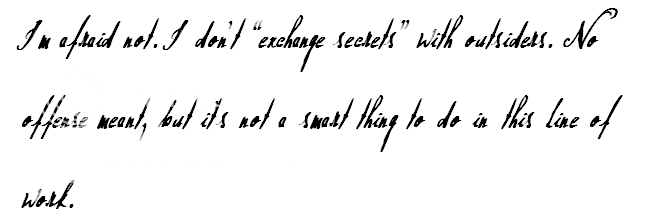 I'm afraid not. I don't "exchange secrets" with outsiders. No
offense meant, but it's not a smart thing to do in this line of
work.